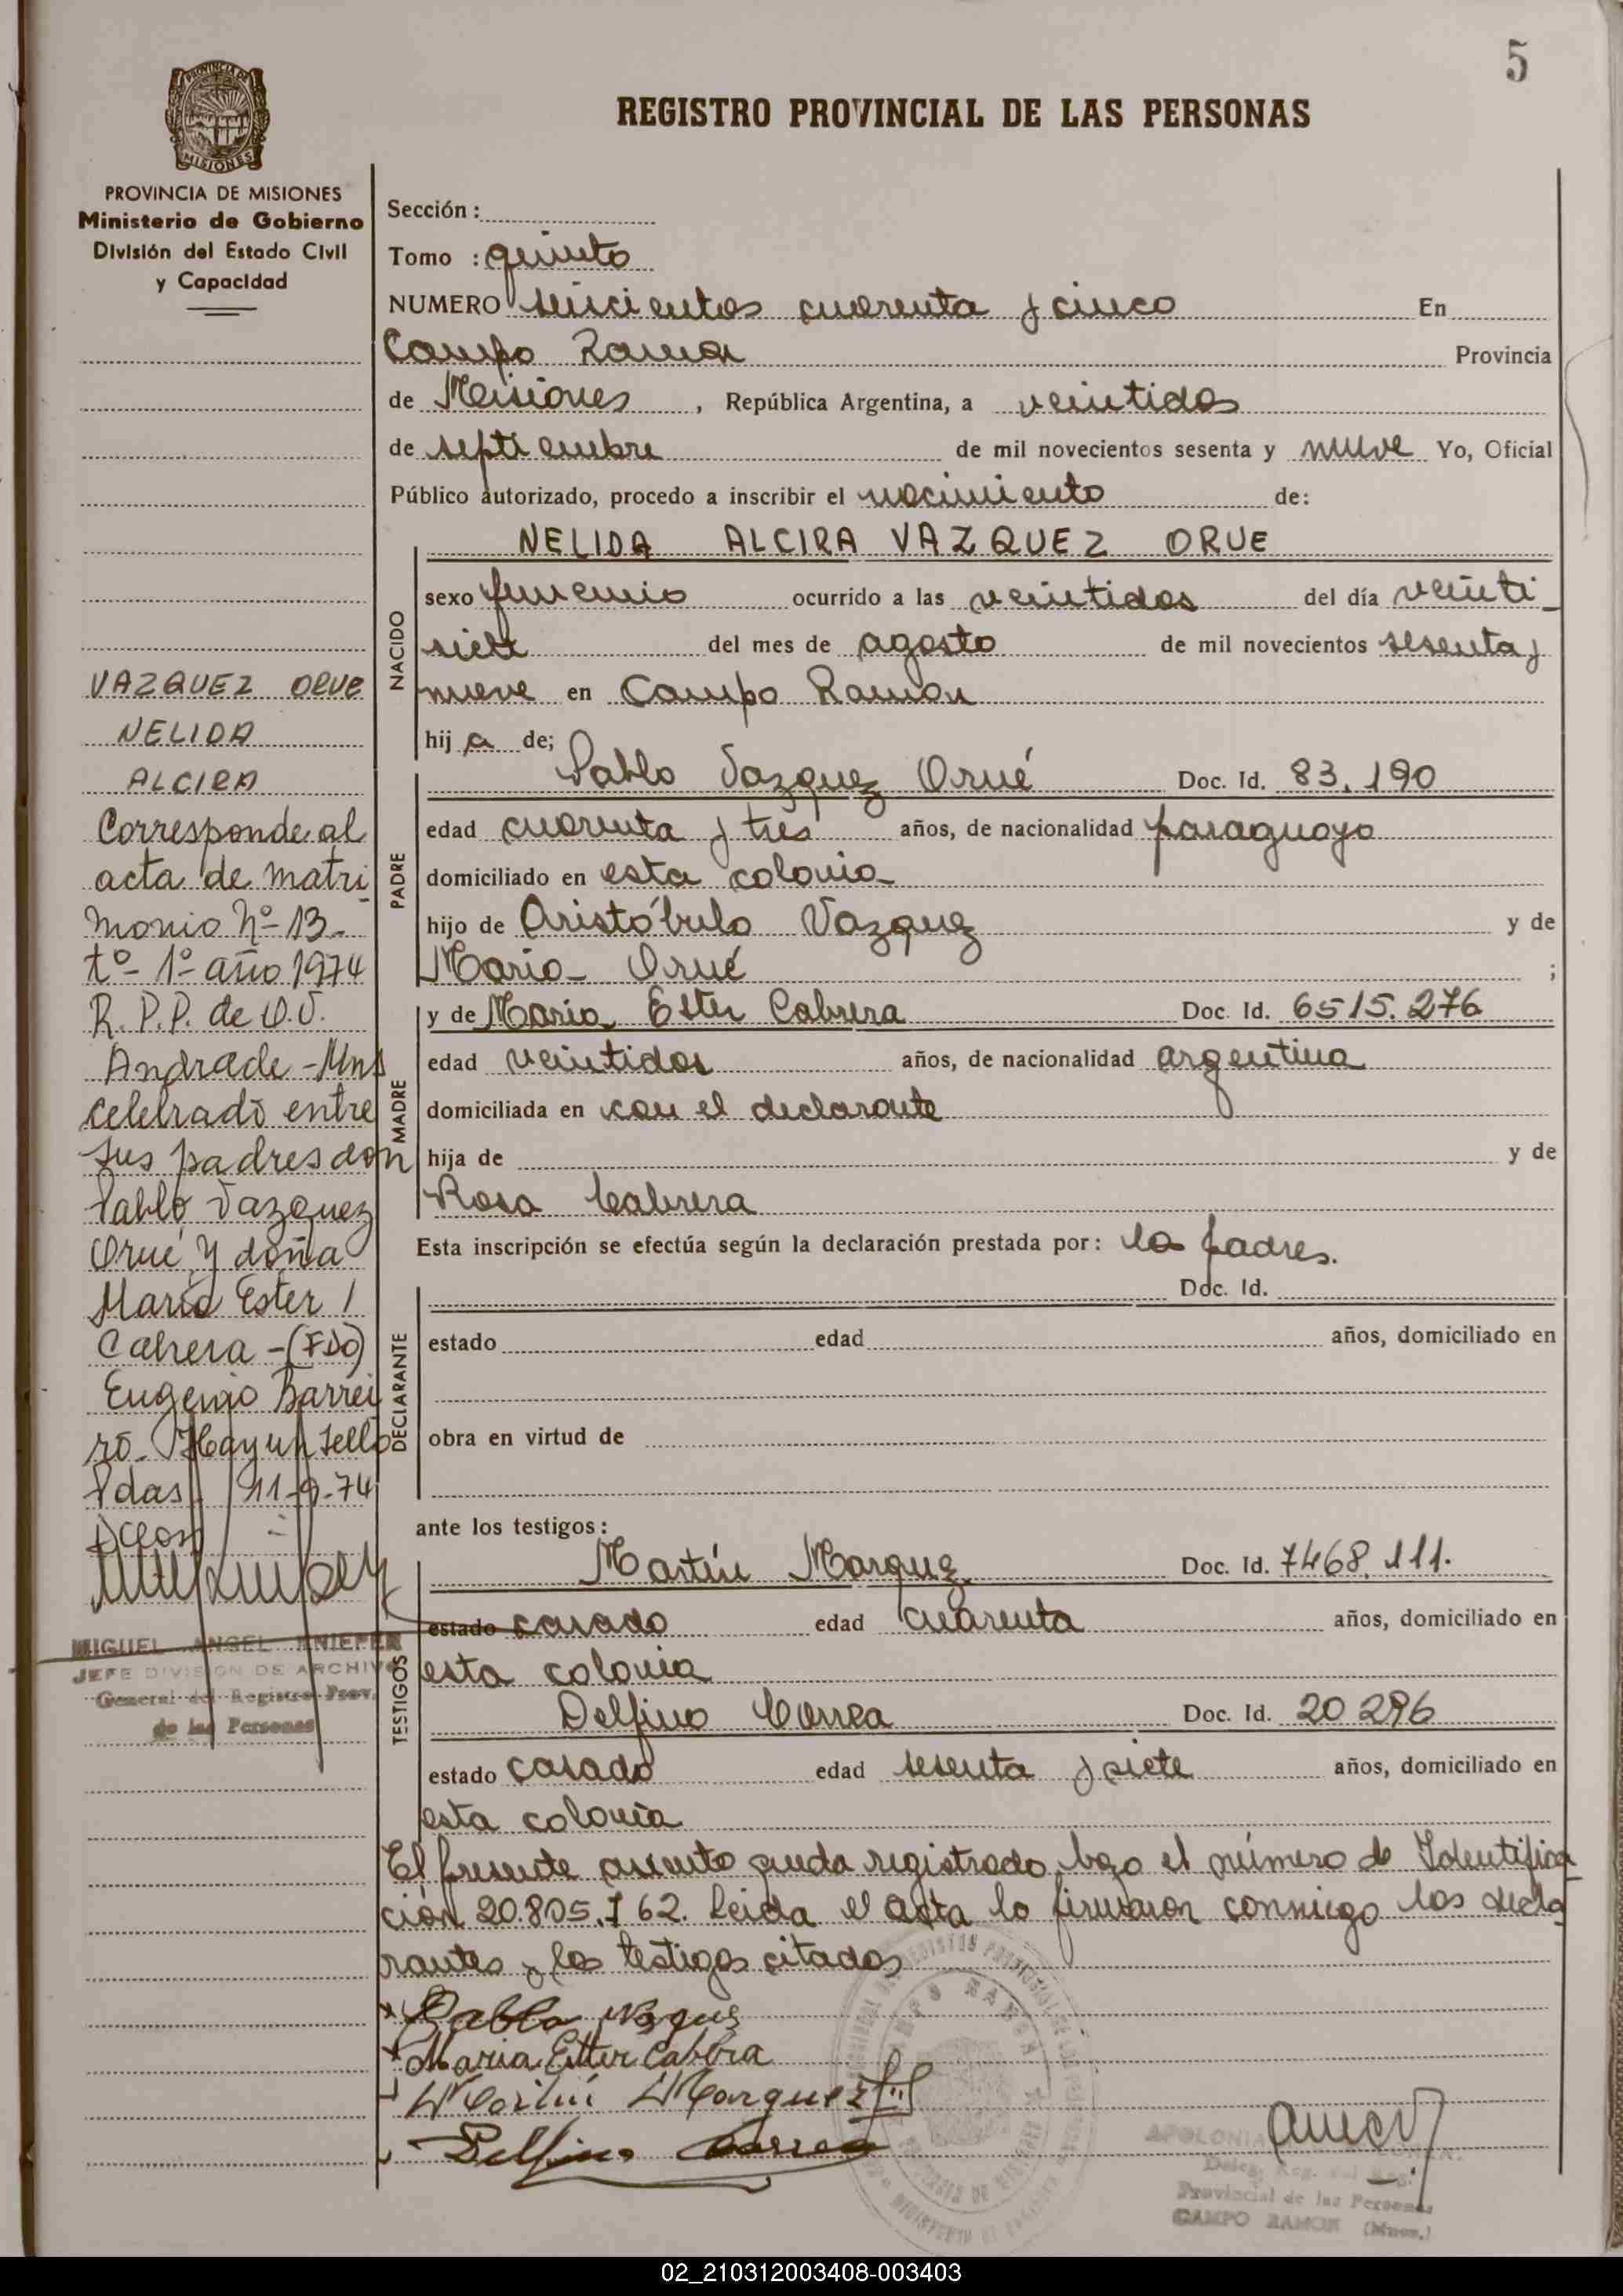 5
REGISTRO PROVINCIAL DE LAS PERSONAS
PROVINCIA DE MISIONES
MISIONES
PROVINCIA DE MISIONES
Ministerio de Gobierno
División del Estado Civil
y Capacidad
VAZQUEZ ORUE
NELIDA
ALCIRA
Corresponde al
acta de matri
monio Nº 13-
tº- 1º- año 1974
R. P. P. de O.V.
Andrade - Mns
celebrado entre
sus padres don
Pablo Vazquez
Orué y doña
María Ester /
Cabrera - (FDO)
Eugenio Barrei
ro- Hay un sello
Pdas. 11-9-74
MIGUEL ANGEL KNIEFER
JEFE DIVISION DE ARCHIVO
General del Registro Prov.
de las Personas
Sección :
Tomo : quinto
NUMERO seiscientos cuarenta y cinco En
Campo Ramon Provincia
de Misiones , República Argentina, a veintidos
de septiembre de mil novecientos sesenta y nueve Yo, Oficial
Público autorizado, procedo a inscribir el nacimiento de:
NELIDA ALCIRA VAZQUEZ ORUE
NACIDO
sexo femenino ocurrido a las veintidos del día veinti_
siete del mes de agosto de mil novecientos sesenta y
nueve en Campo Ramon
hij a de;
PADRE
Pablo Vazquez Orué Doc. Id. 83.190
edad cuarenta y tres años, de nacionalidad paraguayo
domiciliado en esta colonia
hijo de Aristóbulo Vazquez y de
Maria Orué ;
MADRE
y de Maria Ester Cabrera Doc. Id. 6515.276
edad veintidos años, de nacionalidad argentina
domiciliada en con el declarante
hija de y de
Rosa Cabrera
Esta inscripción se efectúa según la declaración prestada por: los padres.
DECLARANTE
Doc. Id.
estado edad años, domiciliado en
obra en virtud de
ante los testigos:
TESTIGOS
Martín Marquez Doc. Id. 7468.111.
estado casado edad cuarenta años, domiciliado en
esta colonia
Delfino Correa Doc. Id. 20.296
estado casado edad sesenta y siete años, domiciliado en
esta colonia
El presente asiento queda registrado bajo el número de Identifica
ción 20.805.762. Leida el acta la firmaron conmigo los decla
rantes y los testigos citados
Pablo
Maria Ester Cabrera
Martín Marquez
Delfino Correa
APOLONIA
Deleg. Reg. del
Provincial de las Personas
CAMPO RAMON (Mnes.)
02_210312003408-003403